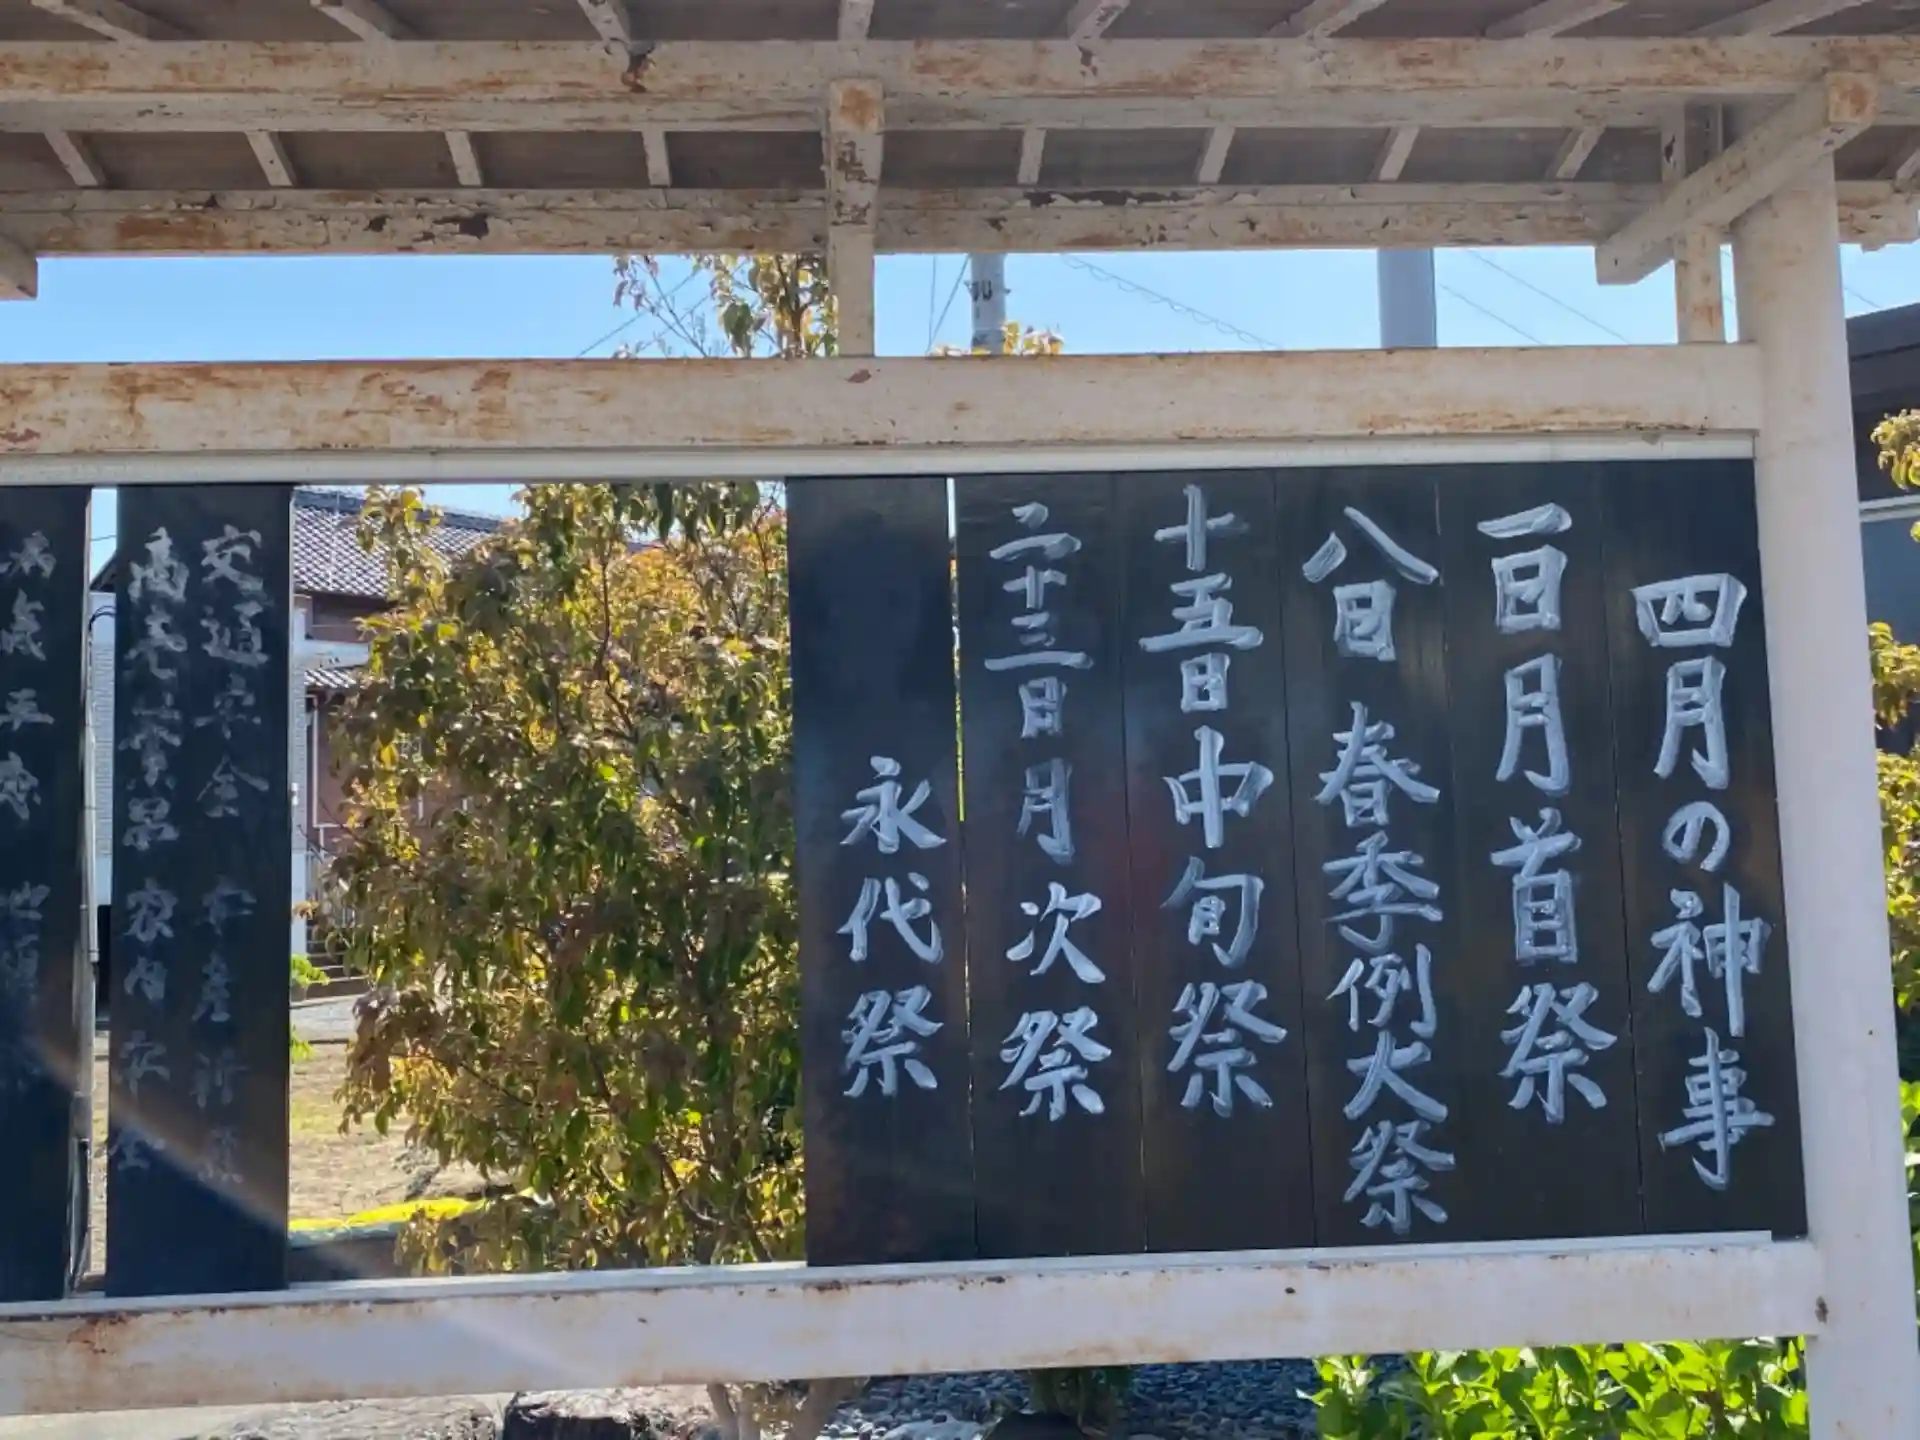 四月の神事
一日月首祭
八日 春季例大祭
十五日中旬祭
二十三日月次祭
永代祭
交通安全 安産祈願
商売繁昌 家内安全